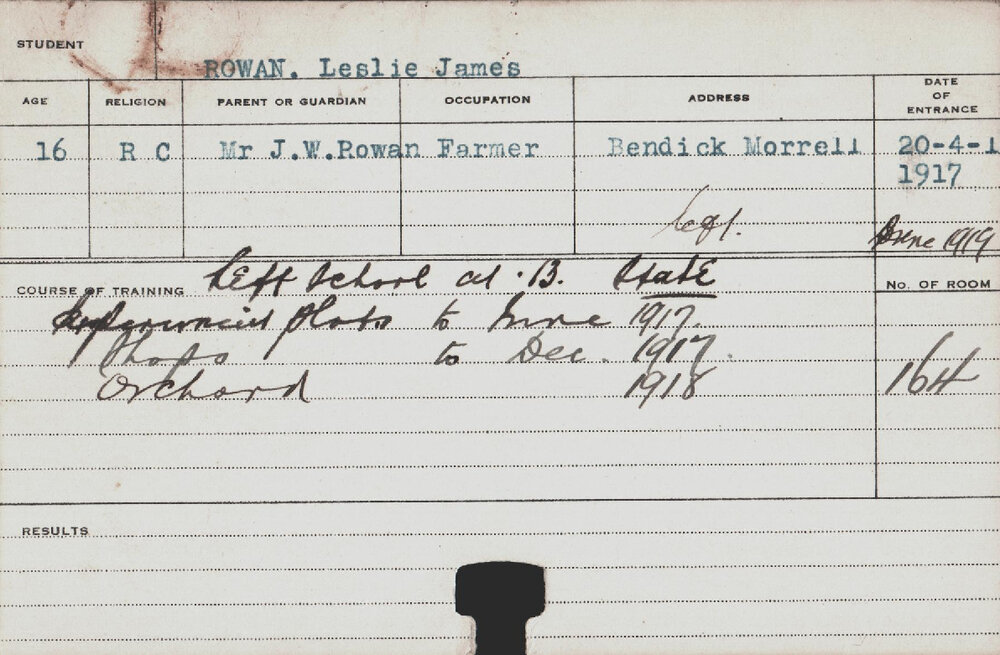 STUDENT
ROWAN. Leslie James
AGE RELIGION PARENT OR GUARDIAN OCCUPATION ADDRESS DATE OF ENTRANCE
16 R C Mr J.W.Rowan Farmer Bendick Morrell 20-4-1
1917
left. June 1919
Left School at B. State
COURSE OF TRAINING No. OF ROOM
Experiment Plots to June 1917.
Shops to Dec. 1917.
Orchard 1918 164
RESULTS